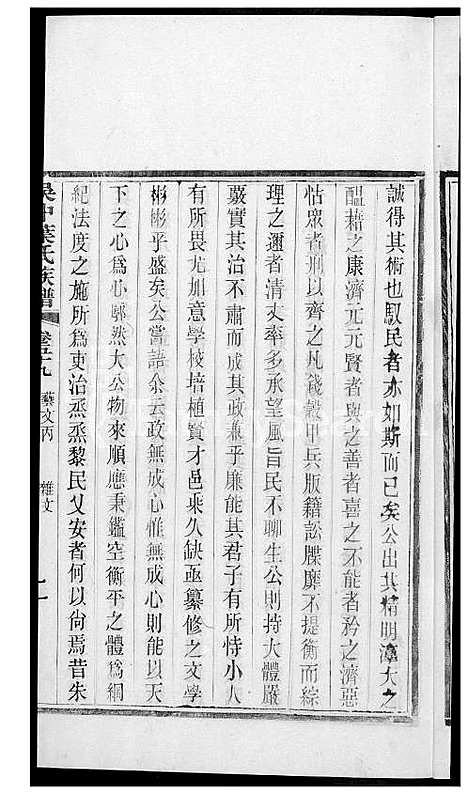 誠得其術也馭民者亦如斯而已矣公出其精明渾大之
醞藉之康濟元元賢者與之善者喜之不能者矜之濟惡
怙眾者刑以齊之凡錢穀甲兵版籍訟牒靡不提衡而綜
理之邇者清丈率多承望風旨民不聊生公則持大體嚴
覈實其治不肅而成其政兼乎廉能其君子有所恃小人
有所畏尤加意學校培植賢才邑乘久缺亟纂修之文學
彬彬乎盛矣公嘗語余云政無成心惟無成心則能以天
下之心為心郭然大公物來順應秉鑑空衡平之體為綱
紀法度之施所為吏治烝烝黎民乂安者何以尙焉昔朱
吳中葉氏族譜 卷五十九 藝文丙 雜文